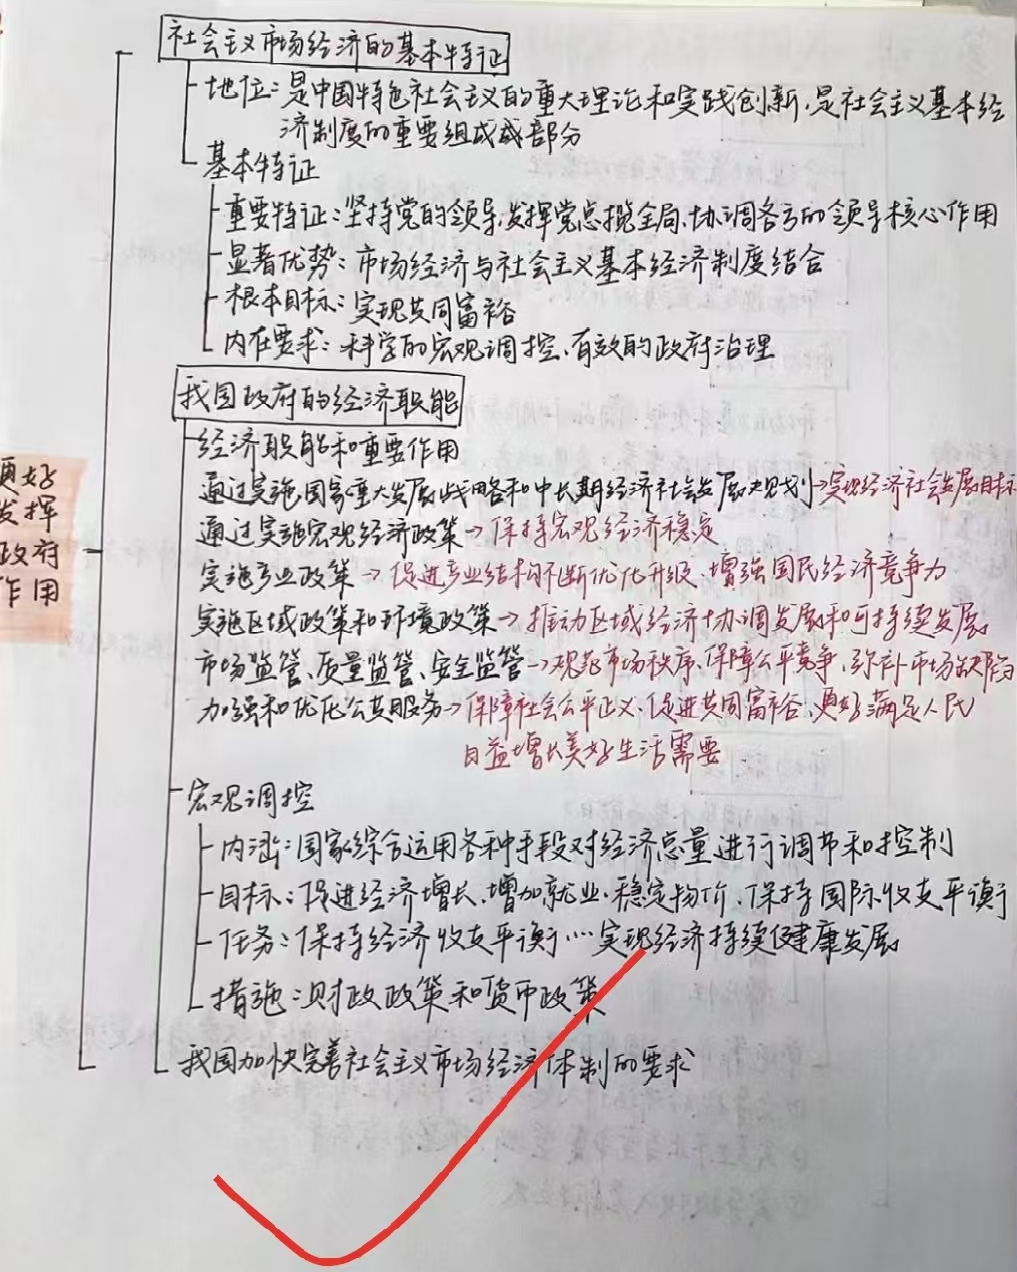 社会主义市场经济的基本特证
地位：是中国特色社会主义的重大理论和实践创新，是社会主义基本经
济制度的重要组成成部分
基本特证
重要特证：坚持党的领导，发挥党总揽全局、协调各方的领导核心作用
显著优势：市场经济与社会主义基本经济制度结合
根本目标：实现共同富裕
内在要求：科学的宏观调控、有效的政府治理
更好
发挥
政府
作用
我国政府的经济职能
经济职能和重要作用
通过实施国家重大发展战略和中长期经济社会发展规划→实现经济社会发展目标
通过实施宏观经济政策→保持宏观经济稳定
实施产业政策→促进产业结构不断优化升级、增强国民经济竞争力
实施区域政策和环境政策→推动区域经济协调发展和可持续发展
市场监管、质量监管、安全监管→规范市场秩序、保障公平竞争、弥补市场缺陷
加强和优化公共服务→保障社会公平正义、促进共同富裕、更好满足人民
日益增长美好生活需要
宏观调控
内涵：国家综合运用各种手段对经济总量进行调节和控制
目标：促进经济增长、增加就业、稳定物价、保持国际收支平衡
任务：保持经济收支平衡……实现经济持续健康发展
措施：财政政策和货币政策
我国加快完善社会主义市场经济体制的要求